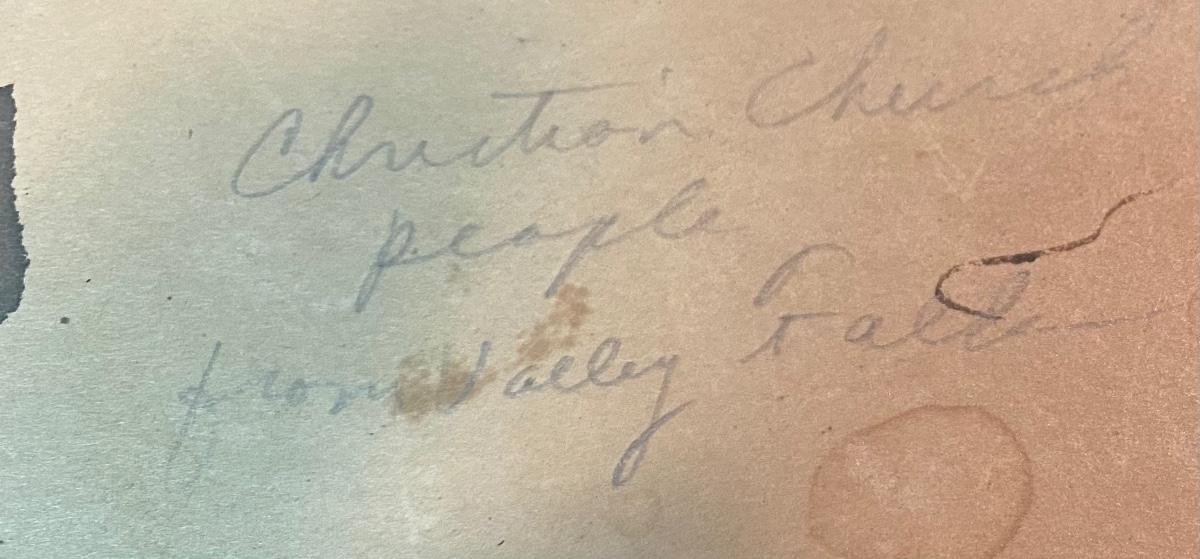 Christian Church
people
from Valley Falls